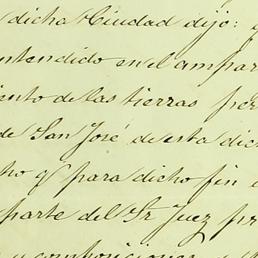 dicha Ciudad dijo: q
ntendido en el ampar
iento de las tierras per
de San José de esta dic
ho q para dicho fin e
parte del Sr Juez pr
y composiciones